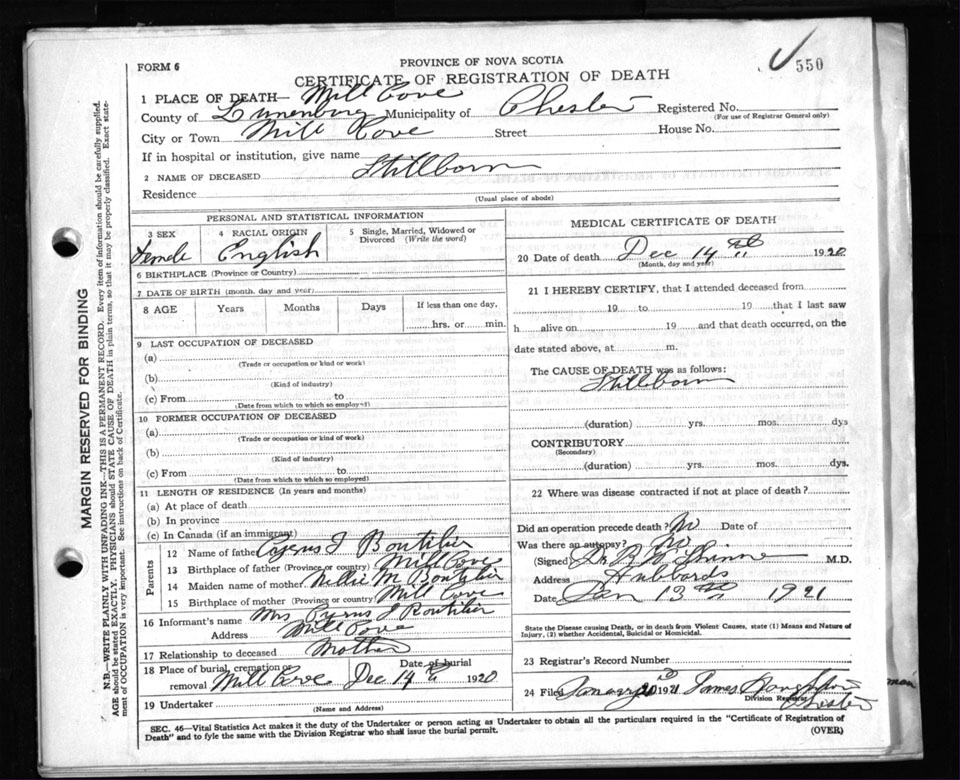 FORM 6
PROVINCE OF NOVA SCOTIA
550
CERTIFICATE OF REGISTRATION OF DEATH
1 PLACE OF DEATH— Mill Cove
County of Lunenburg Municipality of Chester Registered No.
(For use of Registrar General only)
City or Town Mill Cove Street House No.
If in hospital or institution, give name
2 NAME OF DECEASED Stillborn
Residence
(Usual place of abode)
PERSONAL AND STATISTICAL INFORMATION
3 SEX
Female
4 RACIAL ORIGIN
English
5 Single, Married, Widowed or
Divorced (Write the word)
6 BIRTHPLACE (Province or Country)
7 DATE OF BIRTH (month, day and year)
8 AGE Years Months Days If less than one day,
hrs. or min.
9 LAST OCCUPATION OF DECEASED
(a)
(Trade or occupation or kind of work)
(b)
(Kind of industry)
(c) From to
(Date from which to which so employed)
10 FORMER OCCUPATION OF DECEASED
(a)
(Trade or occupation or kind of work)
(b)
(Kind of industry)
(c) From to
(Date from which to which so employed)
11 LENGTH OF RESIDENCE (In years and months)
(a) At place of death
(b) In province
(c) In Canada (if an immigrant)
Parents
12 Name of father Cyrus J Boutilier
13 Birthplace of father (Province or country) Mill Cove
14 Maiden name of mother Nellie M Boutilier
15 Birthplace of mother (Province or country) Mill Cove
16 Informant's name Mrs Cyrus J Boutilier
Address Mill Cove
17 Relationship to deceased Mother
18 Place of burial, cremation or Date of burial
removal Mill Cove Dec 14th 1920
19 Undertaker
(Name and Address)
MEDICAL CERTIFICATE OF DEATH
20 Date of death Dec 14th 1920
(Month, day and year)
21 I HEREBY CERTIFY, that I attended deceased from
19 to 19 that I last saw
h alive on 19 and that death occurred, on the
date stated above, at m.
The CAUSE OF DEATH was as follows:
Stillborn
(duration) yrs. mos. dys
CONTRIBUTORY
(Secondary)
(duration) yrs. mos. dys.
22 Where was disease contracted if not at place of death?
Did an operation precede death? No Date of
Was there an autopsy? No
(Signed) M.D.
Address Hubbards
Date Jan 13th 1921
State the Disease causing Death, or in death from Violent Causes, state (1) Means and Nature of
Injury, (2) whether Accidental, Suicidal or Homicidal.
23 Registrar's Record Number
24 Filed January 20 1921 James
Division Registrar
Chester
SEC. 46—Vital Statistics Act makes it the duty of the Undertaker or person acting as Undertaker to obtain all the particulars required in the "Certificate of Registration of
Death" and to fyle the same with the Division Registrar who shall issue the burial permit.
(OVER)
MARGIN RESERVED FOR BINDING
N.B.—WRITE PLAINLY WITH UNFADING INK—THIS IS A PERMANENT RECORD. Every item of information should be carefully supplied.
AGE should be stated EXACTLY. PHYSICIANS should STATE CAUSE OF DEATH in plain terms, so that it may be properly classified. Exact state-
ment of OCCUPATION is very important. See instructions on back of Certificate.